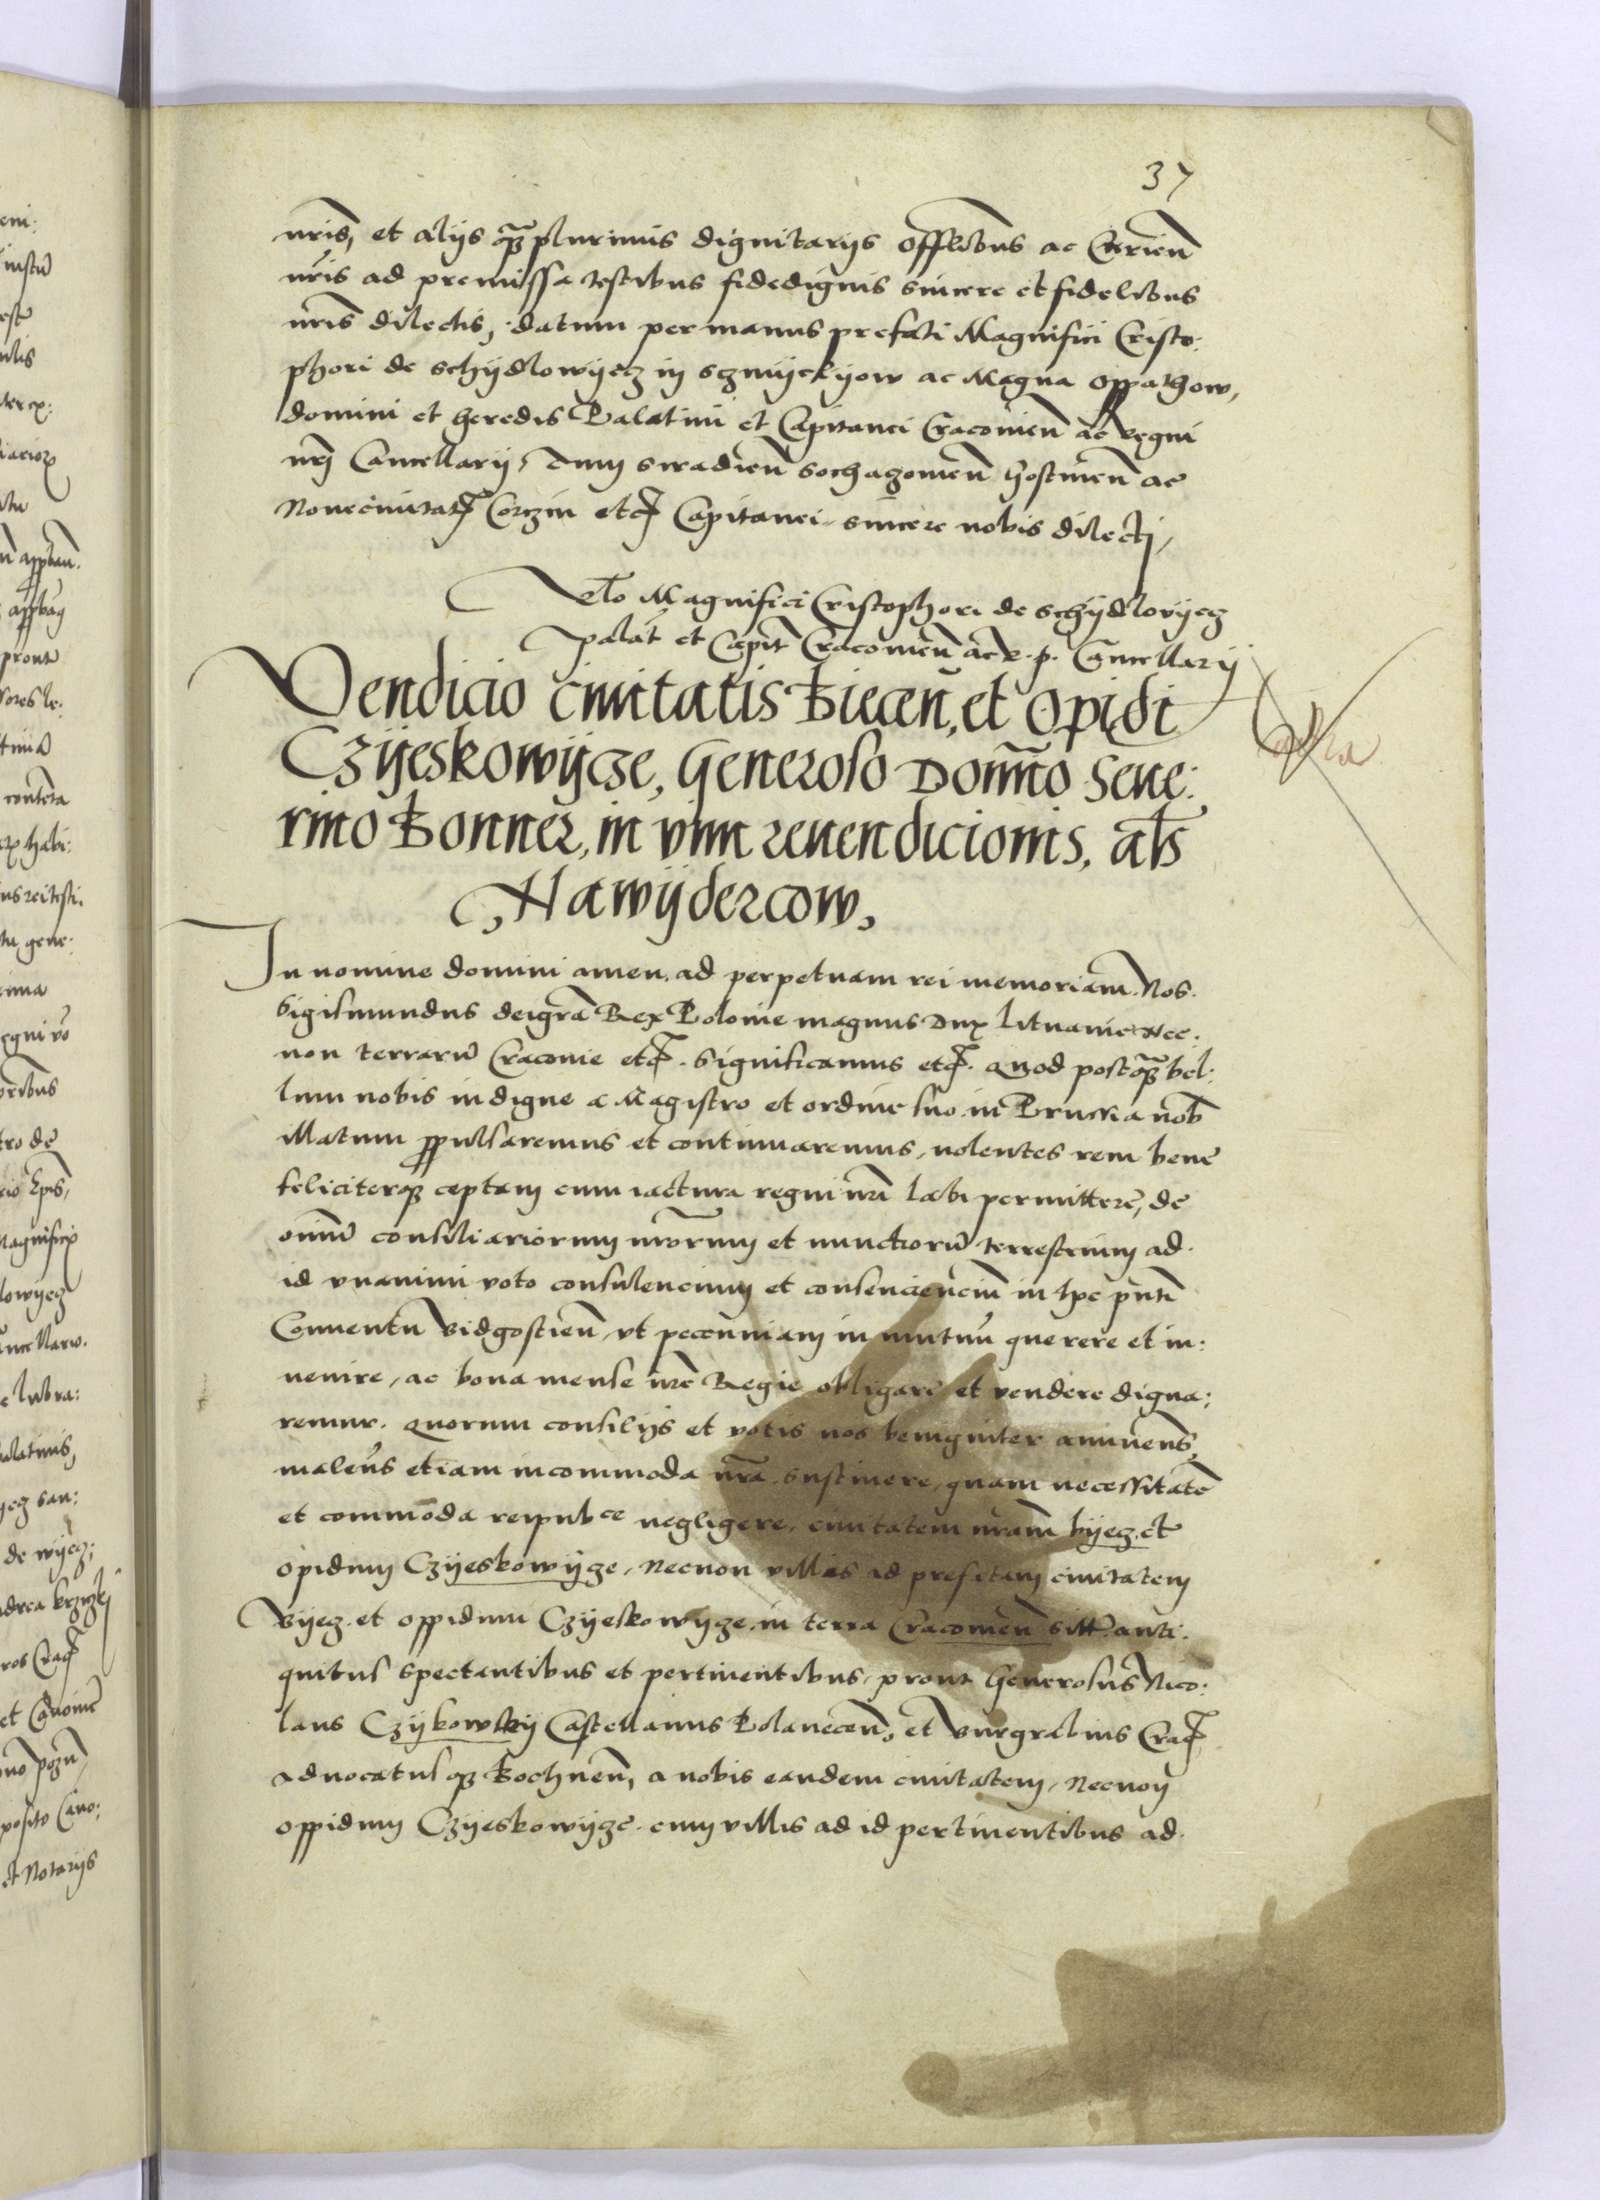 37
nris, et alijs qʒ plurimis dignitarijs offlibus ac Curien
nris ad premissa testibus fidedignis sincere et fidelibus
nris dilectis, datum per manus prefati Magnifici Cristo:
phori de Schydlowyecz in Sczmyekyow ac Magna Oppathow,
domini et heredis Palatini et Capitanei Cracouien ac regni
nrj Cancellarij, Siradien Sochaczouien Gostinen ac
Nouecivitatꝭ Corczin etcꝭ Capitanei sincere nobis dilectj,
Relo Magnifici Cristophori de Schydlovyecz
palat et Capit Cracouien ac R. p. Cancellarij
Vendicio civitatis Biecen, et Opidi
Czyeskowycze, Generoso Domno Seue:
rino Bonner, in vim reuendicionis, als
Nawydercow,
In nomine domini amen. ad perpetuam rei memoriam. Nos.
Sigismundus dei gra Rex Polonie magnus Dux Lituanie Nec.
non terrarum Cracouie etcꝭ. Significamus etcꝭ. Quod postqʒ bel:
lum nobis indigne a Magistro et ordine suo in Prussia nob
illatum ꝓpulsaremus et continuaremus, nolentes rem bene
feliciterqʒ ceptam cum iactura regni nri labi permittere, de
omniu consiliariorum nrorum et nunctioru terrestrium ad.
id vnanimi voto consulencium et consenciencium in hoc pnti
Conuentu Bidgostien, vt pecuniam in mutuu querere et in:
uenire, ac bona mense nre Regie obligare et vendere digna:
remur. Quorum consilijs et votis nos benigniter annuens,
malens etiam incommoda nra sustinere, quam necessitate
et commoda reipubce negligere, ciuitatem nram Byecz. et
opidum Czyeskowycze, Necnon villas ad prefatam ciuitatem
Byecz. et oppidum Czyeskowycze. in terra Cracouien sitt. anti.
quitus spectantibus et pertinentibus, prout Generosus Nico:
laus Czykowsky Castellanus Polanecen, et Burgrabius Cracꝭ
aduocatusqʒ Bochnen, a nobis eandem ciuitatem, Necnon
oppidum Czyeskowycze. cum villis ad id pertinentibus ad.